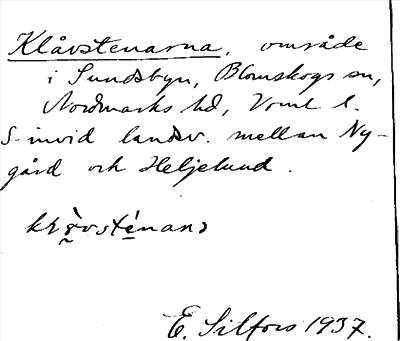 Klåvstenarna, område
i Sundsbyn, Blomskogs sn,
Nordmarks hd, Verml l.
S. invid landsv. mellan Ny-
gård och Heljelund.
E. Silfors 1937.